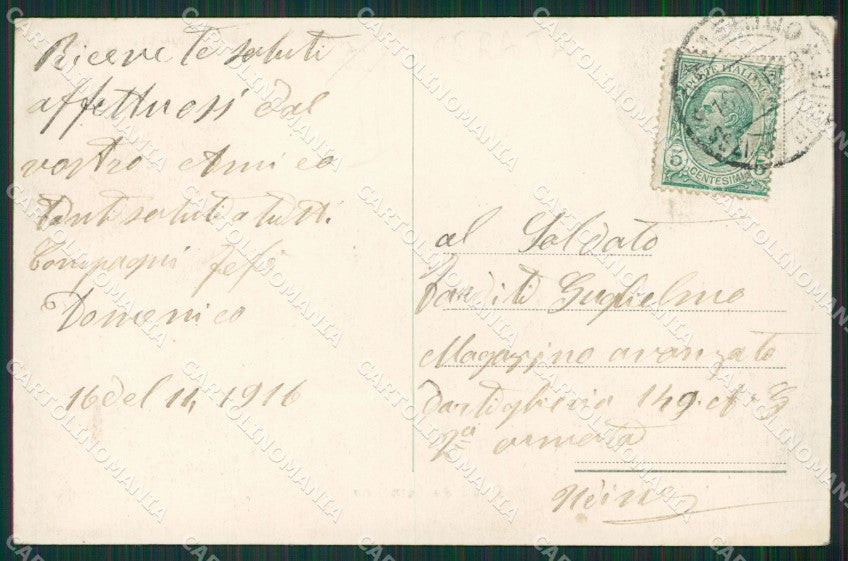 Ricevete saluti
affettuosi dal
vostro Amico
tanti saluti a tutti
Compagni
Domenico
16 del 11, 1916
POSTE ITALIANE
5 CENTESIMI 5
al Soldato
Guglielmo
Magazzino avanzato
d'artiglieria 149
2a armata
CARTOLINOMANIA